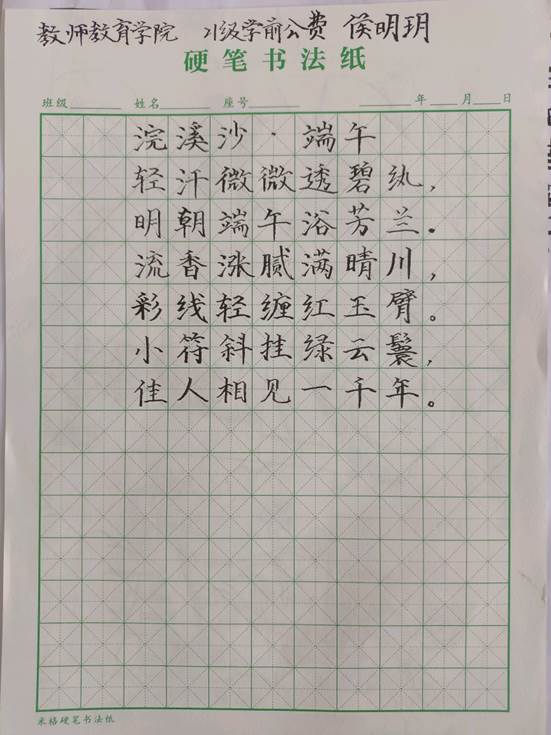 教师教育学院 21级学前公费 侯明玥
硬笔书法纸
班级 姓名 座号 年 月 日
浣溪沙·端午
轻汗微微透碧纨,
明朝端午浴芳兰。
流香涨腻满晴川,
彩线轻缠红玉臂。
小符斜挂绿云鬟,
佳人相见一千年。
米格硬笔书法纸